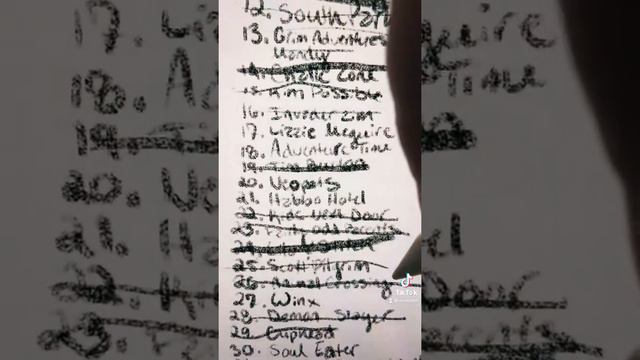 12. South Park
13. Grim Adventures
14. Charlie Conk
15. Kim Possible
16. Invader Zim
17. Lizzie Mcguire
18. Adventure Time
19.
20. Neopets
21. Habbo Hotel
22. Kids Next Door
23. Fairly odd Parents
24.
25. Scott Pilgrim
26. Animal Crossing
27. Winx
28. Demon Slayer
29. Cuphead
30. Soul Eater
TikTok